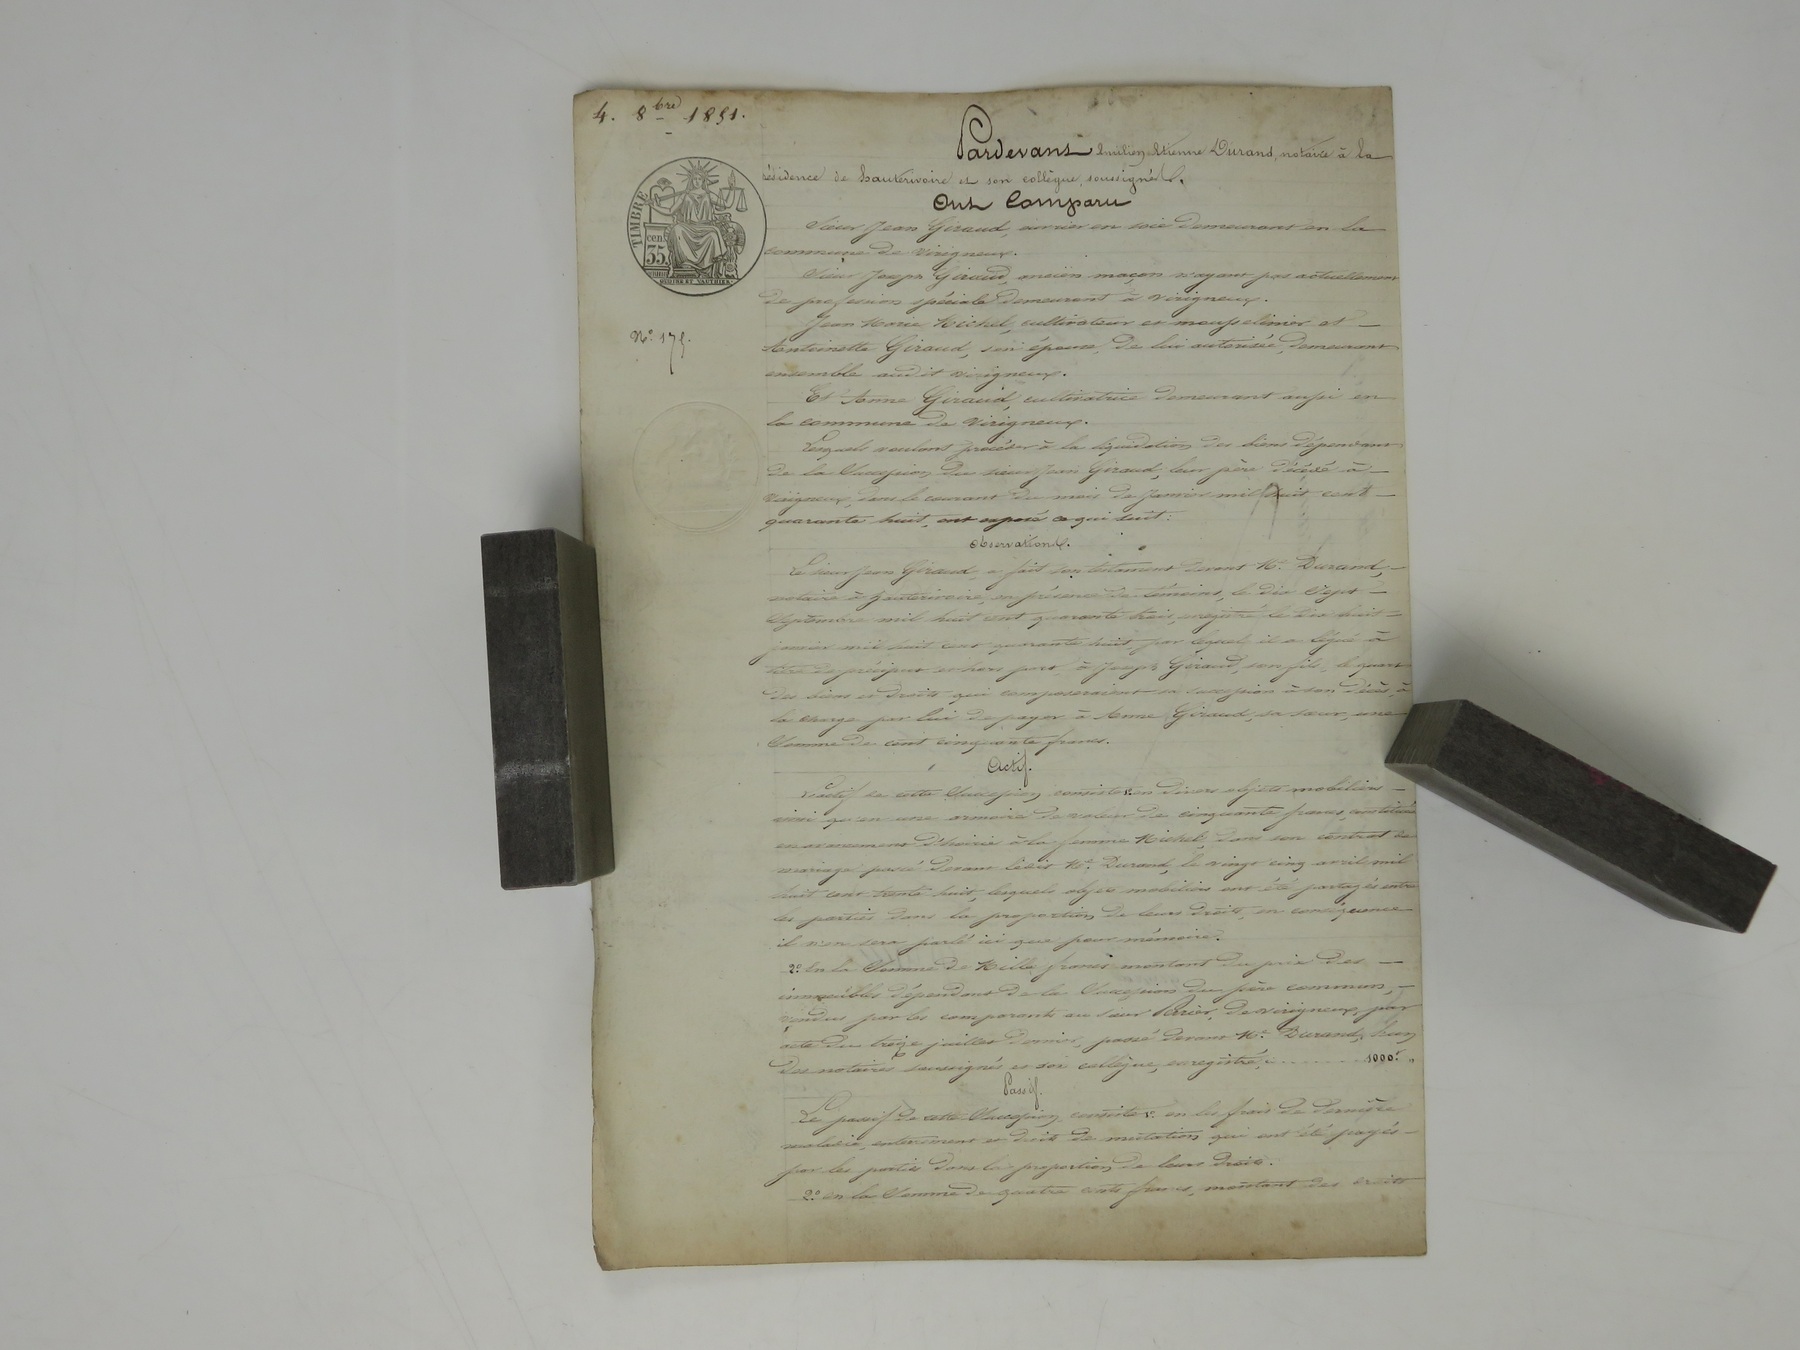 4. 8bre 1851.
TIMBRE
cen.
35.
OUDINE ET VAUTHIER
N.o 175.
Pardevant Emilien Etienne Durand, notaire à la
résidence de hauterivoire et son collègue, soussignés.
Ont Comparu
Sieur Jean Giraud, ouvrier en soie demeurant en la
commune de Virigneux.
Sieur Joseph Giraud, ancien maçon n'ayant pas actuellement
de profession spéciale demeurant à Virigneux.
Jean Marie Michel, cultivateur et mousselinier et
Antoinette Giraud, son épouse, de lui autorisée, demeurant
ensemble audit Virigneux.
Et Anne Giraud, cultivatrice demeurant aussi en
la commune de Virigneux.
Lesquels voulant procéder à la liquidation des biens dépendant
de la Succession du sieur Jean Giraud, leur père décédé à
Virigneux, dans le courant du mois de Janvier mil huit cent
quarante huit, ont exposé ce qui suit:
Observations.
Le sieur Jean Giraud, a fait son testament devant Me. Durand,
notaire à hauterivoire, en présence de témoins, le dix Sept
Septembre mil huit cent quarante trois, enregistré le dix huit
janvier mil huit cent quarante huit, par lequel il a légué à
titre de préciput et hors part, à Joseph Giraud, son fils, le quart
des biens et droits qui composeraient sa succession à son décès, à
la charge par lui de payer à Anne Giraud, sa sœur, une
Somme de cent cinquante francs.
Actif.
L'actif de cette Succession consiste 1o. en divers objets mobiliers
ainsi qu'en une armoire de valeur de cinquante francs, constituée
en avancement d'hoirie à la femme Michel, dans son contrat de
mariage passé devant ledit Me. Durand, le vingt cinq avril mil
huit cent trente huit, lesquels objets mobiliers ont été partagés entre
les parties dans la proportion de leurs droits, en conséquence
il n'en sera parlé ici que pour mémoire.
2o. En la Somme de Mille francs montant du prix des
immeubles dépendant de la Succession du père commun,
vendus par les comparants au sieur Perier, de Virigneux, par
acte du treize juillet dernier, passé devant Me. Durand, l'un
des notaires soussignés et son collègue, enregistré, 1000f "
Passif.
Le passif de cette Succession consiste 1o. en les frais de dernière
maladie, enterrement et droits de mutation qui ont été payés
par les parties dans la proportion de leurs droits.
2o. en la Somme de quatre cents francs, montant des droits